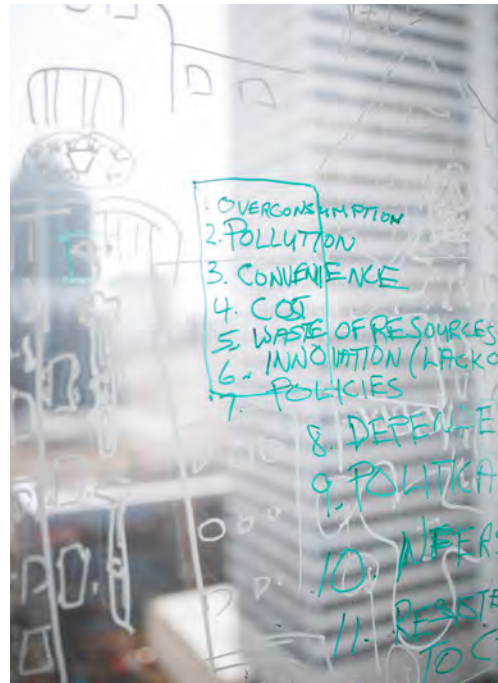 1. OVERCONSUMPTION
2. POLLUTION
3. CONVENIENCE
4. COST
5. WASTE OF RESOURCES
6. INNOVATION (LACK O
7. POLICIES
8. DEPENDE
9. POLITICA
10.
11. RESISTE
TO C